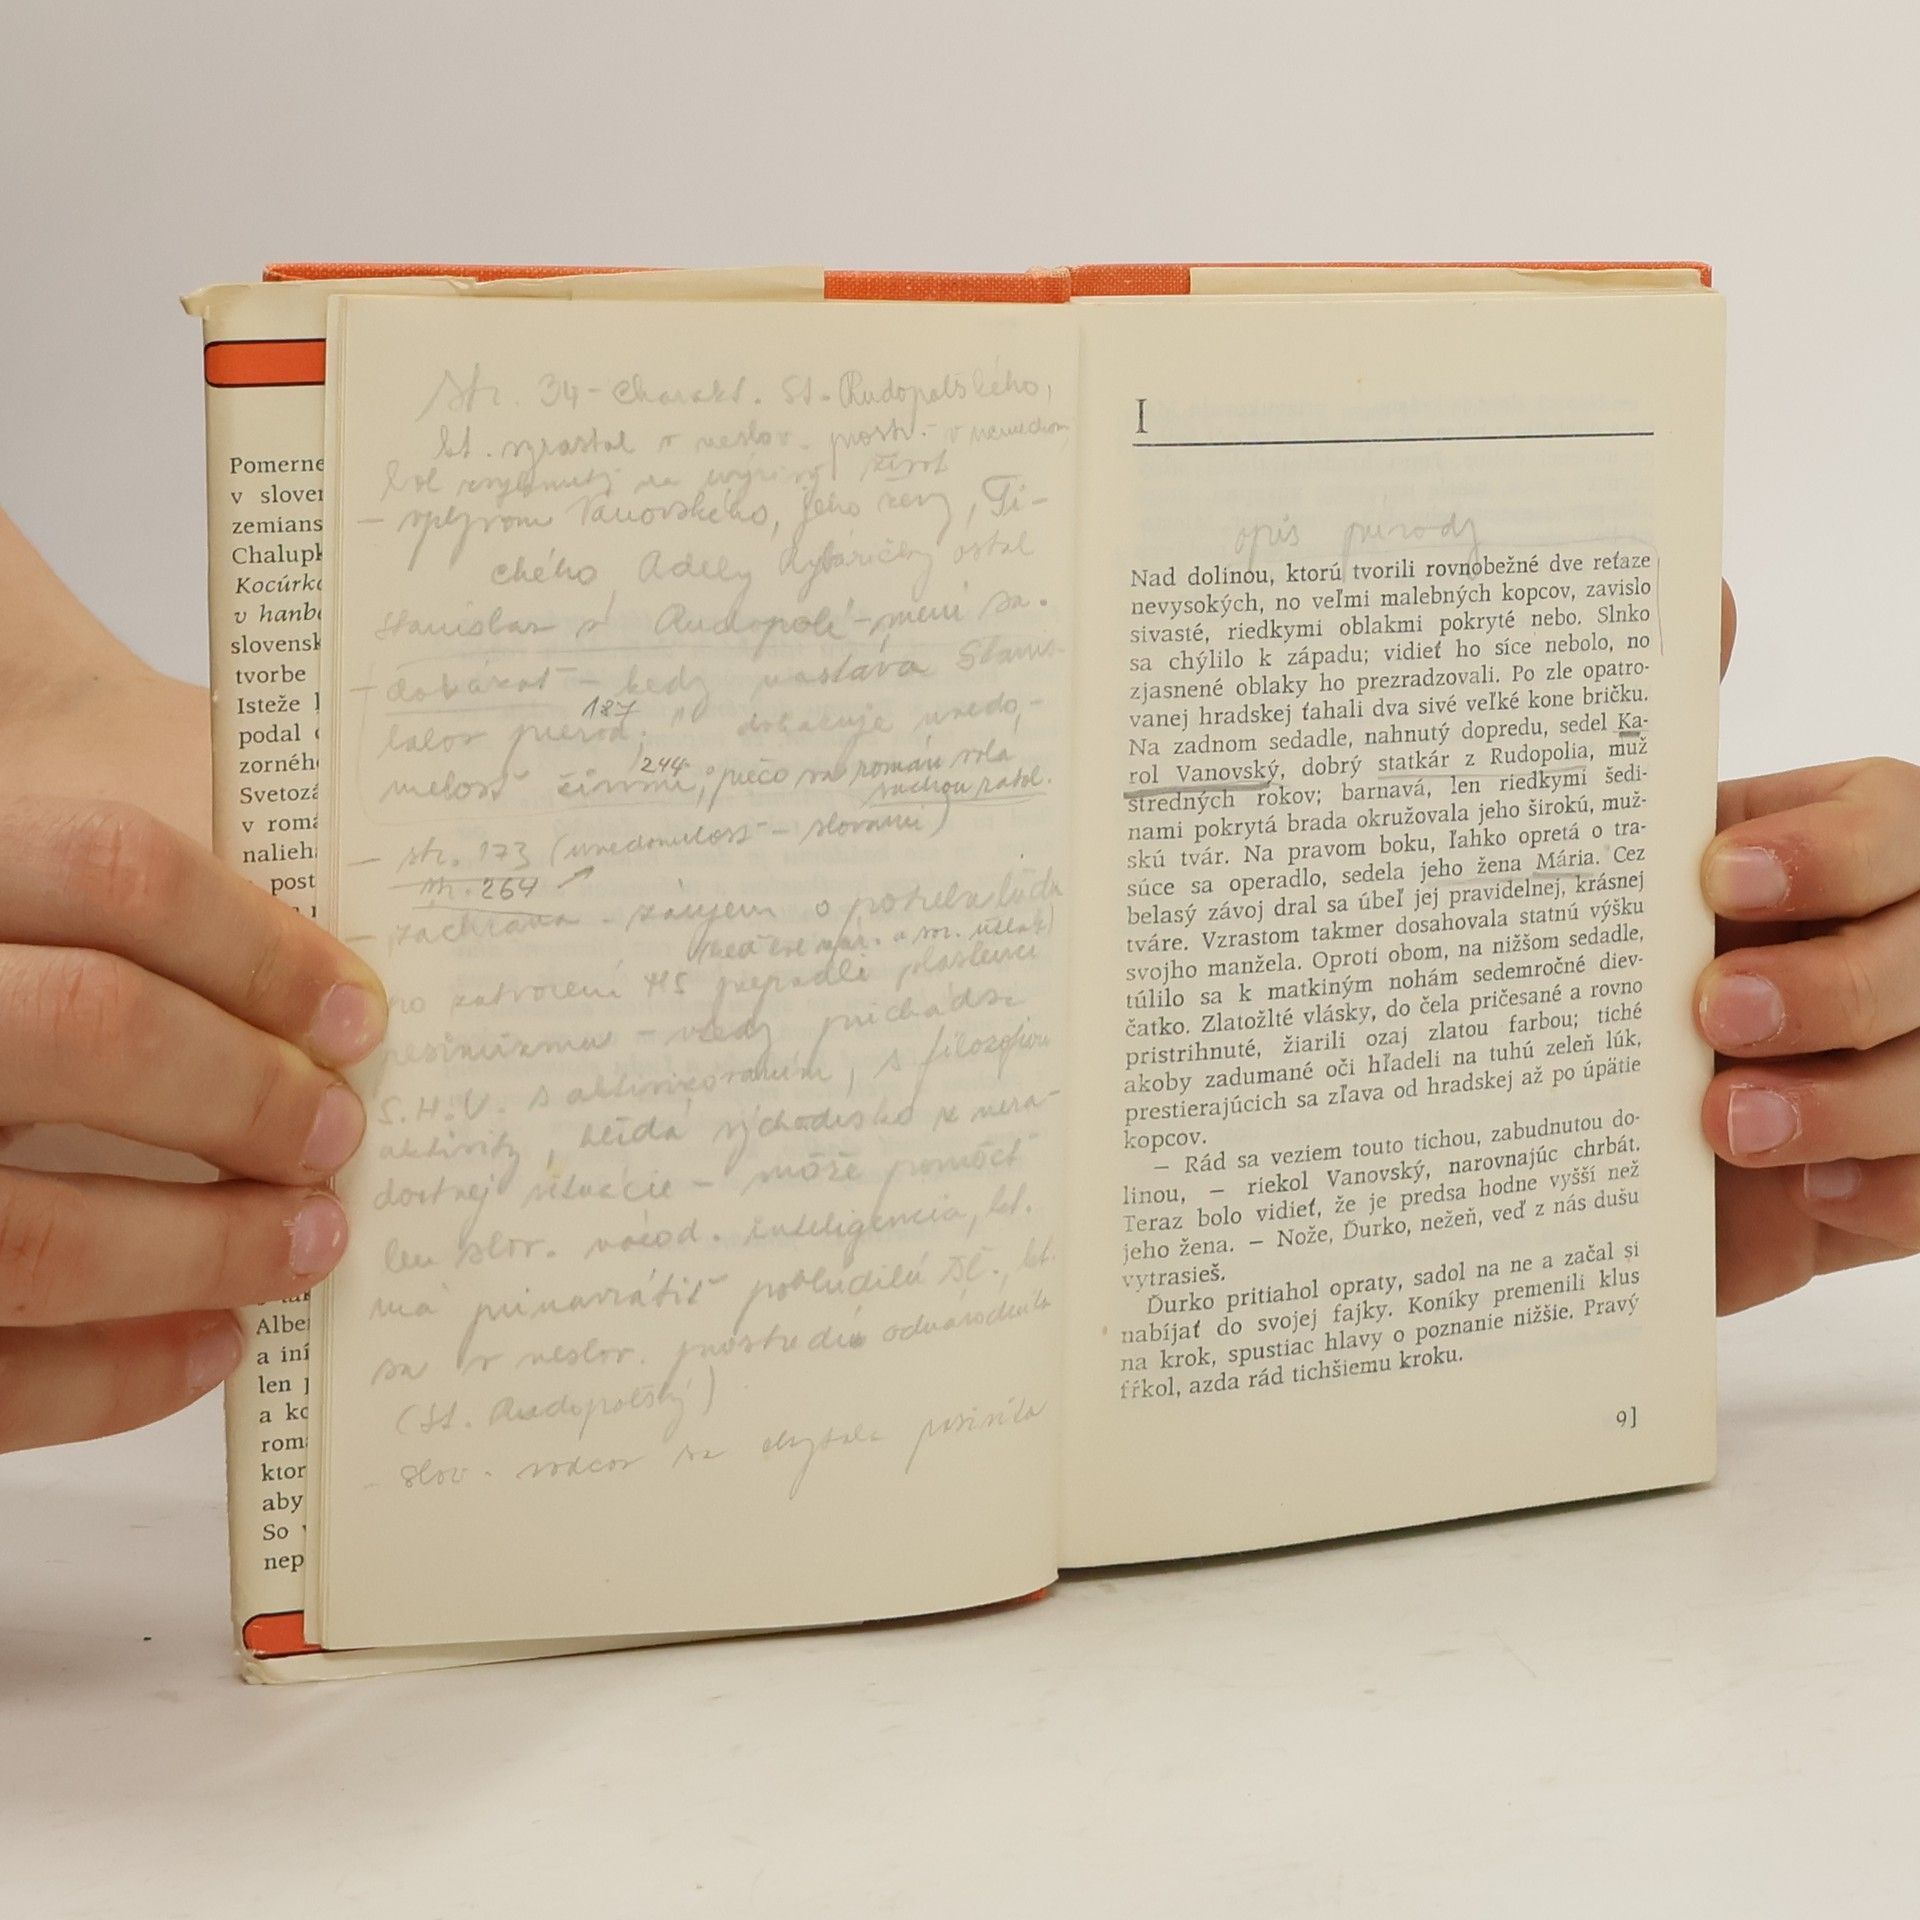 Pomerne
v slove
zemians
Chalupk
Kocúrko
v hanb
slovensk
tvorbe
Isteže
podal
zorného
Svetozá
v romá
nalieh
post
Albe
a iní
len
a ko
romá
ktor
aby
So
nep
str. 34 - charakt. St. Rudopoľského,
kt. vyrastal v neslov. prostr. - v nemeckom
bol
- vplyvom Vanovského, jeho ženy, Ti-
chého, Adely Rybáričky ostal
Stanislav v Rudopolí - mení sa.
+ dokázať - kedy nastáva Stanis-
lavov prerod; 187 dokazuje uvedo-
melosť činmi, 244; prečo sa román volá
suchou ratol.
- str. 173 (uvedomelosť - slovami)
str. 264
- záchrana - záujem o potreby ľudu
po zatvorení MS prepadli
pesimizmu - vtedy prichádza
S. H. V. s aktivizovaním, s filozofiou
aktivity, hľadá východisko z nera-
dostnej situácie - môže pomôcť
len slov. národ. inteligencia, kt.
má prinavrátiť poblúdilú kt.
sa v neslov. prostredí odnárodnila
(St. Rudopoľský)
- Slov. sa chytala
I
opis prírody
Nad dolinou, ktorú tvorili rovnobežné dve reťaze
nevysokých, no veľmi malebných kopcov, zavislo
sivasté, riedkymi oblakmi pokryté nebo. Slnko
sa chýlilo k západu; vidieť ho síce nebolo, no
zjasnené oblaky ho prezradzovali. Po zle opatro-
vanej hradskej ťahali dva sivé veľké kone bričku.
Na zadnom sedadle, nahnutý dopredu, sedel Ka-
rol Vanovský, dobrý statkár z Rudopolia, muž
stredných rokov; barnavá, len riedkymi šedi-
nami pokrytá brada okružovala jeho širokú, muž-
skú tvár. Na pravom boku, ľahko opretá o tra-
súce sa operadlo, sedela jeho žena Mária. Cez
belasý závoj dral sa úbeľ jej pravidelnej, krásnej
tváre. Vzrastom takmer dosahovala statnú výšku
svojho manžela. Oproti obom, na nižšom sedadle,
túlilo sa k matkiným nohám sedemročné diev-
čatko. Zlatožlté vlásky, do čela pričesané a rovno
pristrihnuté, žiarili ozaj zlatou farbou; tiché
akoby zadumané oči hľadeli na tuhú zeleň lúk,
prestierajúcich sa zľava od hradskej až po úpätie
kopcov.
— Rád sa veziem touto tichou, zabudnutou do-
linou, — riekol Vanovský, narovnajúc chrbát.
Teraz bolo vidieť, že je predsa hodne vyšší než
jeho žena. — Nože, Ďurko, nežeň, veď z nás dušu
vytrasieš.
Ďurko pritiahol opraty, sadol na ne a začal si
nabíjať do svojej fajky. Koníky premenili klus
na krok, spustiac hlavy o poznanie nižšie. Pravý
fŕkol, azda rád tichšiemu kroku.
9]